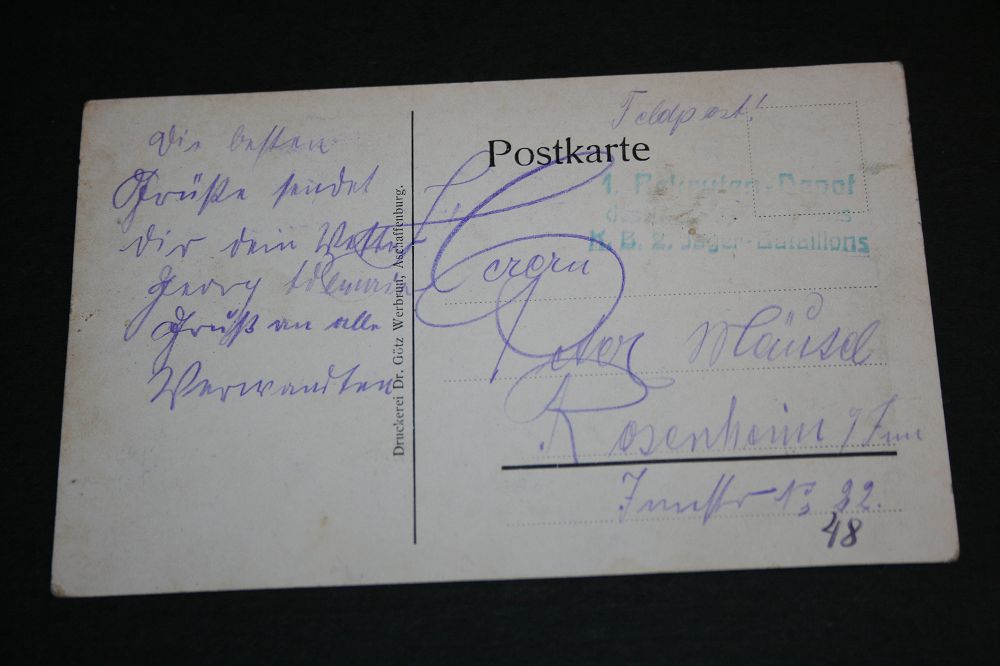 Die besten
Grüße sendet
dir dein Vetter
Georg
Gruß an alle
Verwandten
Druckerei Dr. Götz Werbrun, Aschaffenburg.
Feldpost!
Postkarte
1. Rekruten-Depot
des
K. B. 2. Jäger-Bataillons
Herrn
Peter Mäusel
Rosenheim a/Inn
Innstr No 22.
48